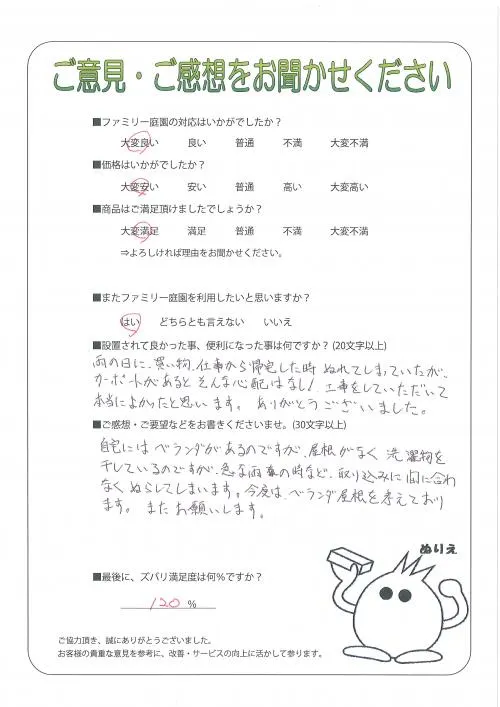 ご意見・ご感想をお聞かせください
■ファミリー庭園の対応はいかがでしたか？
大変良い 良い 普通 不満 大変不満
■価格はいかがでしたか？
大変安い 安い 普通 高い 大変高い
■商品はご満足頂けましたでしょうか？
大変満足 満足 普通 不満 大変不満
⇒よろしければ理由をお聞かせください。
■またファミリー庭園を利用したいと思いますか？
はい どちらとも言えない いいえ
■設置されて良かった事、便利になった事は何ですか？（20文字以上）
雨の日に、買い物、仕事から帰宅した時 ぬれてしまっていたが、
カーポートがあると そんな心配はなし！ 工事をしていただいて
本当によかったと思います。 ありがとうございました。
■ご感想・ご要望などをお書きくださいませ。（30文字以上）
自宅には ベランダがあるのですが、屋根がなく 洗濯物を
干しているのですが、急な雨の時など、取り込みに間に合わ
なく ぬらしてしまいます。今度は、ベランダ屋根を考えており
ます。 また お願いします。
■最後に、ズバリ満足度は何％ですか？
120 %
ぬりえ
ご協力頂き、誠にありがとうございました。
お客様の貴重な意見を参考に、改善・サービスの向上に活かして参ります。